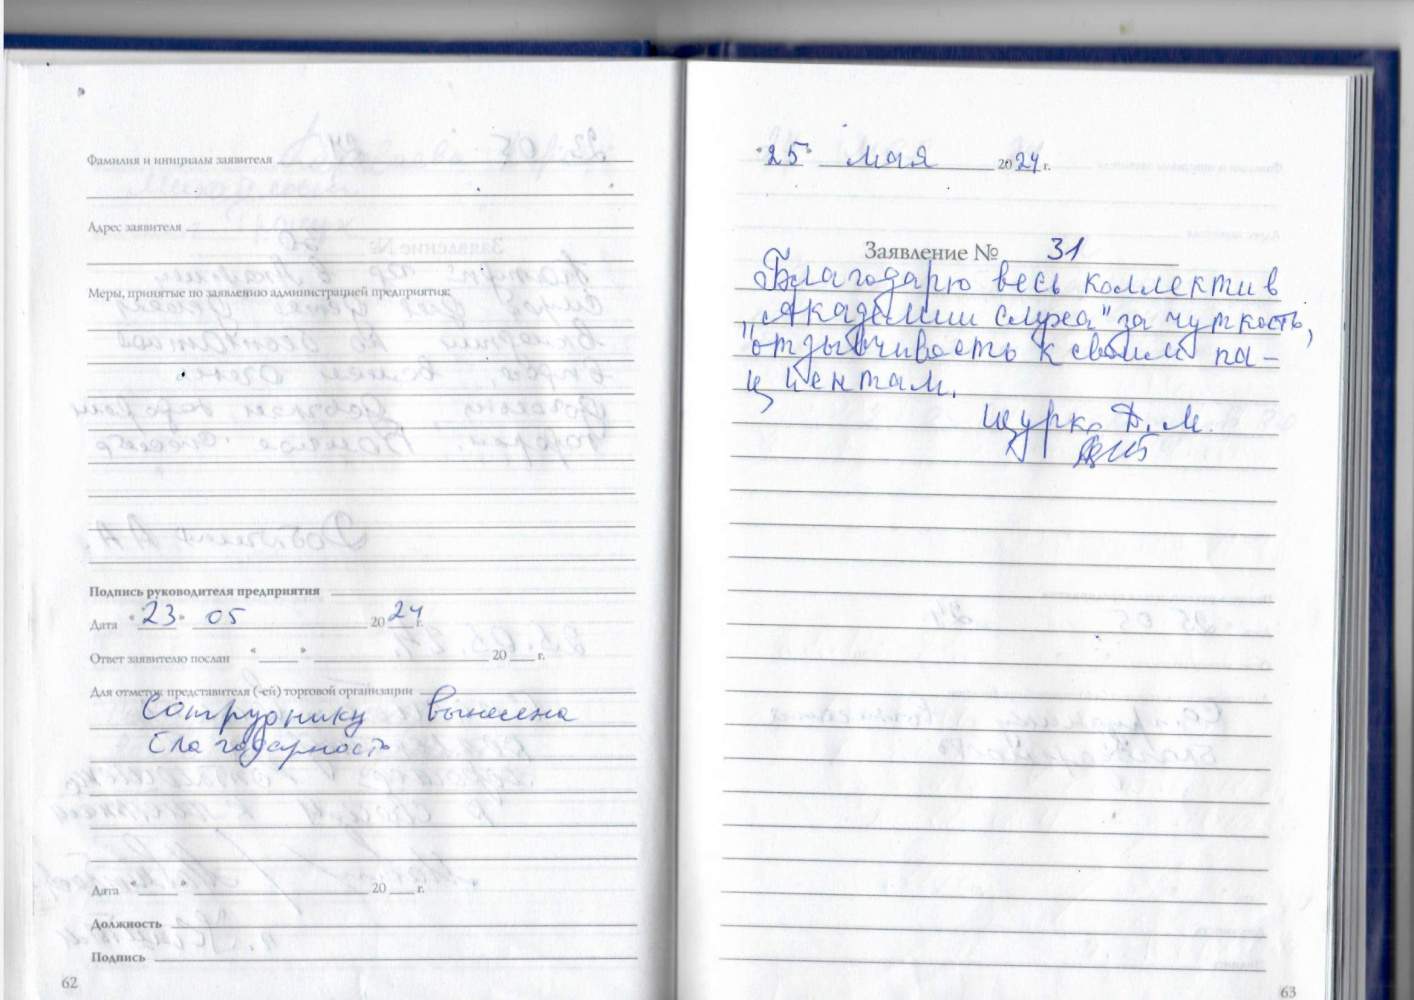 Фамилия и инициалы заявителя
Адрес заявителя
Меры, принятые по заявлению администрацией предприятия:
Подпись руководителя предприятия
Дата "23" 05 2024 г.
Ответ заявителю послан " " 20 г.
Для отметок представителя (-ей) торговой организации
Сотруднику вынесена
благодарность
Дата " " 20 г.
Должность
Подпись
62
"25" мая 2024 г.
Заявление № 31
Благодарю весь коллектив
"Академии слуха" за чуткость,
отзывчивость к своим па-
циентам.
Щурко Д. М.
63